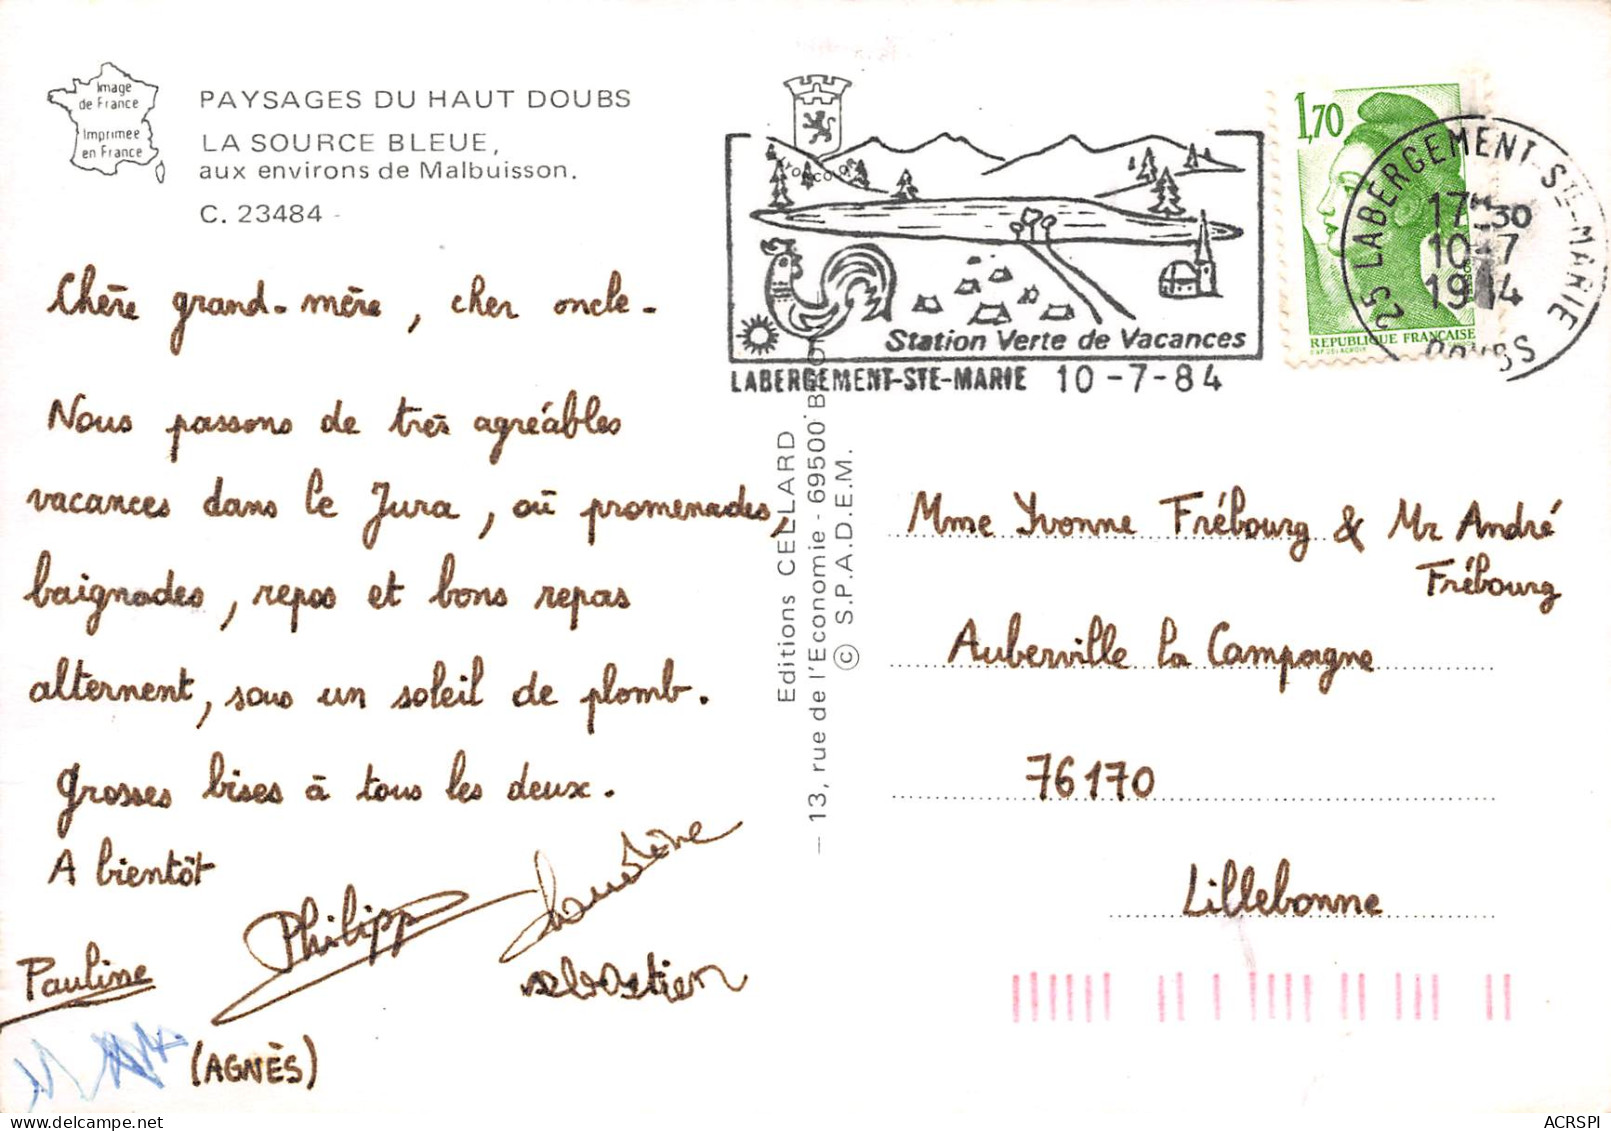 Image
de France
Imprimée
en France
PAYSAGES DU HAUT DOUBS
LA SOURCE BLEUE,
aux environs de Malbuisson.
C. 23484
Chère grand-mère, cher oncle-
Nous passons de très agréables
vacances dans le Jura, où promenades,
baignades, repos et bons repas
alternent, sous un soleil de plomb.
Grosses bises à tous les deux.
A bientôt
Philippe
Pauline
sebastien
(AGNÈS)
Editions CELLARD
13, rue de l'Economie - 69500 B
© S.P.A.D.E.M.
Station Verte de Vacances
LABERGEMENT-STE-MARIE 10-7-84
1,70
REPUBLIQUE FRANÇAISE
25 LABERGEMENT-STE-MARIE
17H30
10-7
1984
DOUBS
Mme Yvonne Frébourg & Mr André
Frébourg
Auberville la Campagne
76170
Lillebonne
ACRSPI